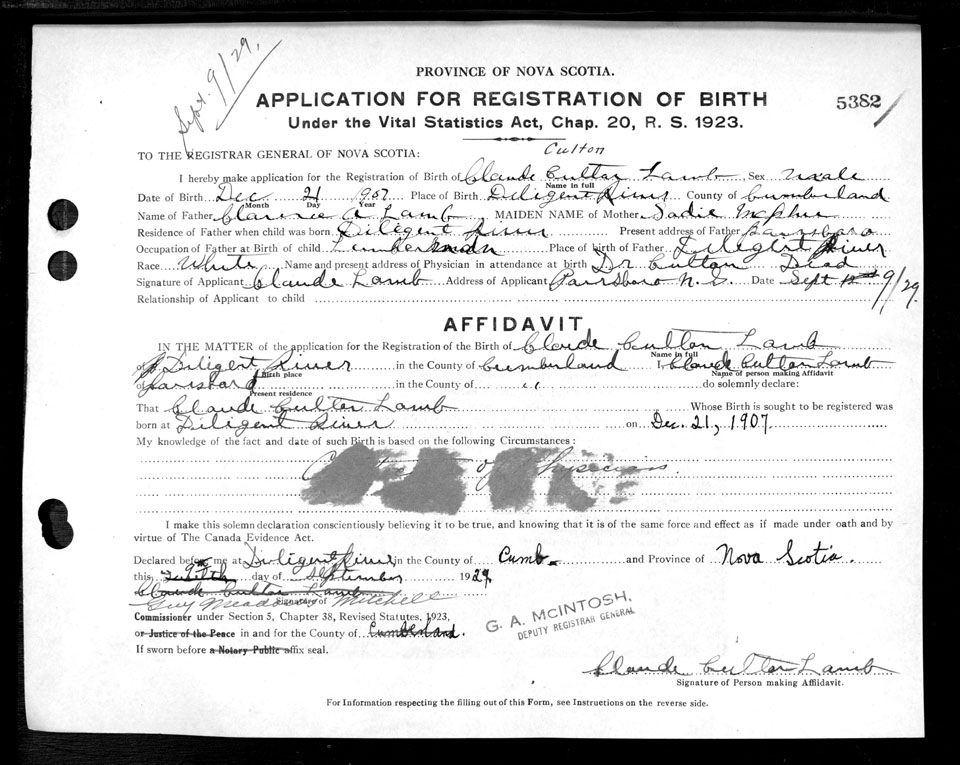 Sept. 9/29.
PROVINCE OF NOVA SCOTIA.
APPLICATION FOR REGISTRATION OF BIRTH
5382
Under the Vital Statistics Act, Chap. 20, R. S. 1923.
Culton
TO THE REGISTRAR GENERAL OF NOVA SCOTIA:
I hereby make application for the Registration of Birth of Claude Culton Lamb Sex Male
Name in full
Date of Birth Dec 21 1907 Place of Birth Diligent River County of Cumberland
Month Day Year
Name of Father Clarence A Lamb MAIDEN NAME of Mother Sadie McPhee
Residence of Father when child was born Diligent River Present address of Father Parrsboro
Occupation of Father at Birth of child Lumberman Place of birth of Father Diligent River
Race White Name and present address of Physician in attendance at birth Dr Culton Dead
Signature of Applicant Claude Lamb Address of Applicant Parrsboro N.S. Date Sept 9/29.
Relationship of Applicant to child
AFFIDAVIT
IN THE MATTER of the application for the Registration of the Birth of Claude Culton Lamb
Name in full
of Diligent River in the County of Cumberland I, Claude Culton Lamb
Birth place Name of person making Affidavit
of in the County of " do solemnly declare:
Present residence
That Claude Culton Lamb Whose Birth is sought to be registered was
born at Diligent River on Dec. 21, 1907.
My knowledge of the fact and date of such Birth is based on the following Circumstances:
of Physicians.
I make this solemn declaration conscientiously believing it to be true, and knowing that it is of the same force and effect as if made under oath and by
virtue of The Canada Evidence Act.
Declared before me at Diligent River in the County of Cumb. and Province of Nova Scotia.
this 9th day of September 1929
Claude Culton Lamb
Guy Meadows Mitchell
Signature of
Commissioner under Section 5, Chapter 38, Revised Statutes, 1923,
or Justice of the Peace in and for the County of Cumberland.
If sworn before a Notary Public affix seal.
G. A. McINTOSH,
DEPUTY REGISTRAR GENERAL
Claude Culton Lamb
Signature of Person making Affidavit.
For Information respecting the filling out of this Form, see Instructions on the reverse side.